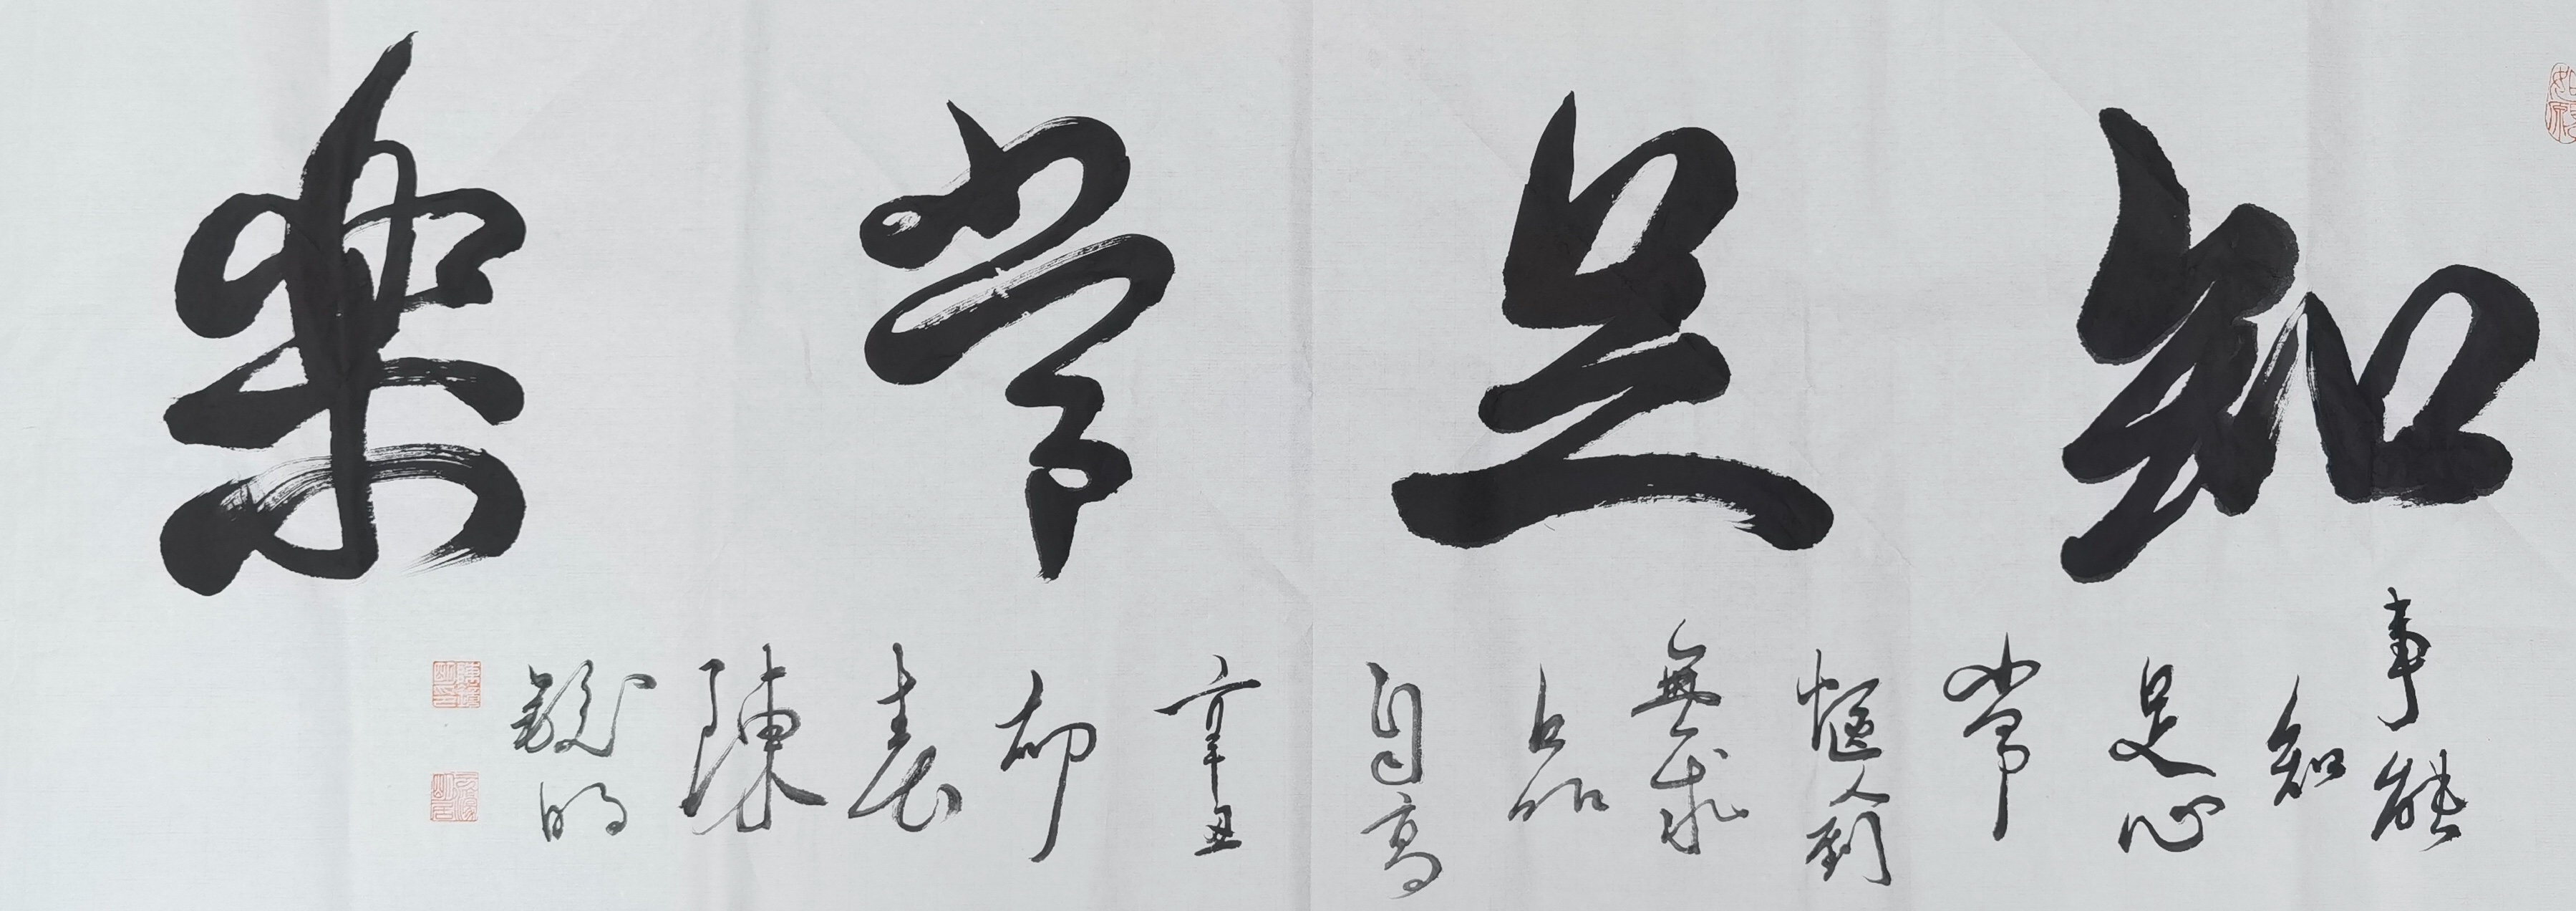 知足常樂
事能
知
足心
常
愜人到
無求
品
自高
辛丑
春
陳
明